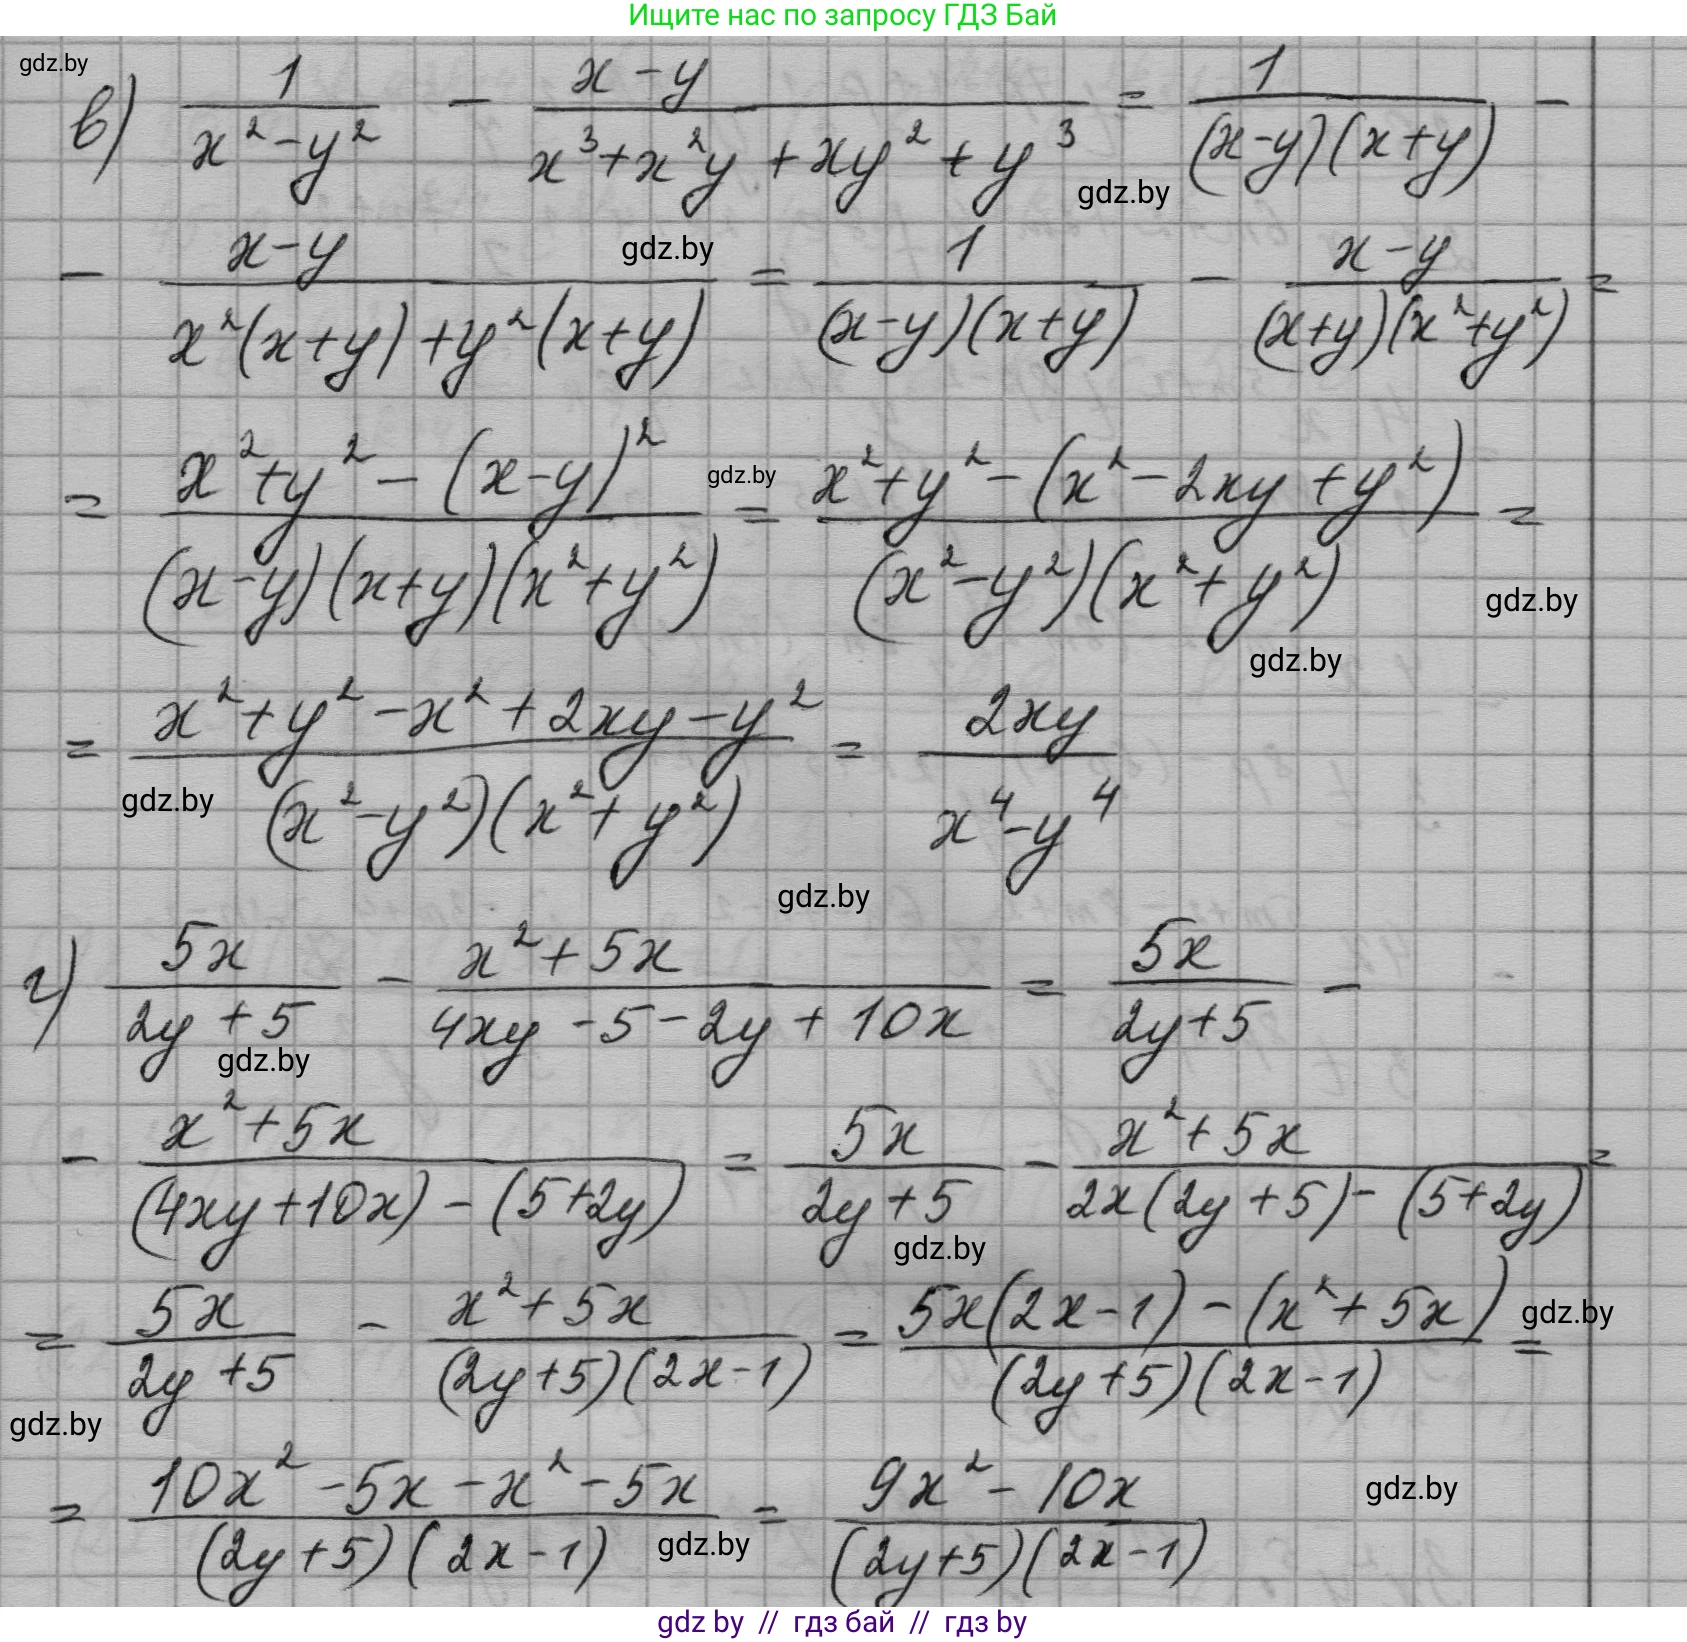 Ищите нас по запросу ГДЗ Бай
gdz.by
в) 1/(x²-y²) - (x-y)/(x³+x²y+xy²+y³) = 1/((x-y)(x+y)) -
gdz.by
gdz.by
- (x-y)/(x²(x+y)+y²(x+y)) = 1/((x-y)(x+y)) - (x-y)/((x+y)(x²+y²)) =
gdz.by
= (x²+y²-(x-y)²)/((x-y)(x+y)(x²+y²)) = (x²+y²-(x²-2xy+y²))/((x²-y²)(x²+y²)) =
gdz.by
gdz.by
= (x²+y²-x²+2xy-y²)/((x²-y²)(x²+y²)) = 2xy/(x⁴-y⁴)
gdz.by
gdz.by
г) 5x/(2y+5) - (x²+5x)/(4xy-5-2y+10x) = 5x/(2y+5) -
gdz.by
- (x²+5x)/((4xy+10x)-(5+2y)) = 5x/(2y+5) - (x²+5x)/(2x(2y+5)-(5+2y)) =
gdz.by
= 5x/(2y+5) - (x²+5x)/((2y+5)(2x-1)) = (5x(2x-1)-(x²+5x))/((2y+5)(2x-1)) =
gdz.by
gdz.by
= (10x²-5x-x²-5x)/((2y+5)(2x-1)) = (9x²-10x)/((2y+5)(2x-1))
gdz.by
gdz.by
gdz by // гдз бай // гдз by